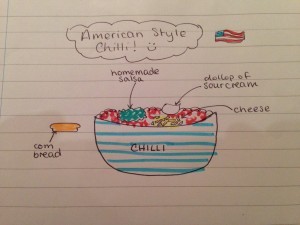 American Style
Chilli!
homemade
salsa
dollop of
sourcream
cheese
corn
bread
CHILLI